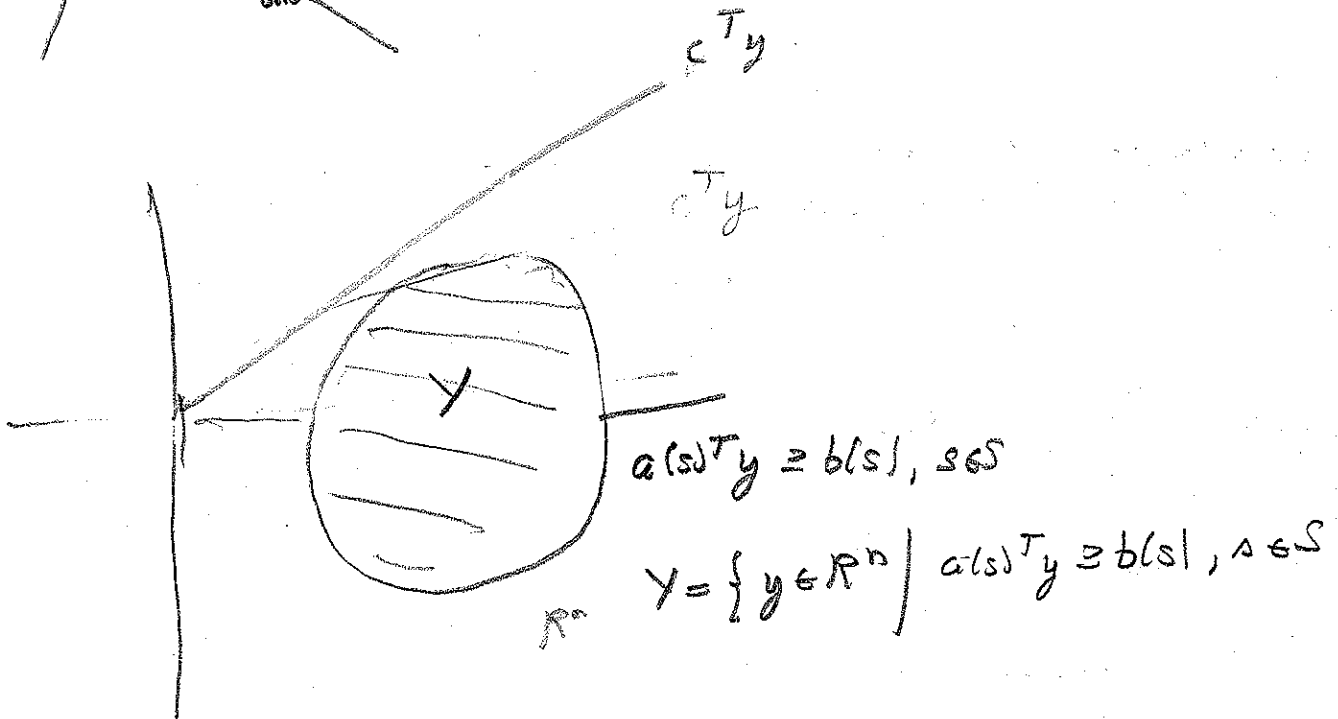 c^T y
c^T y
Y
a(s)^T y ≥ b(s), s∈S
Y = { y ∈ R^n | a(s)^T y ≥ b(s), s ∈ S
R^n